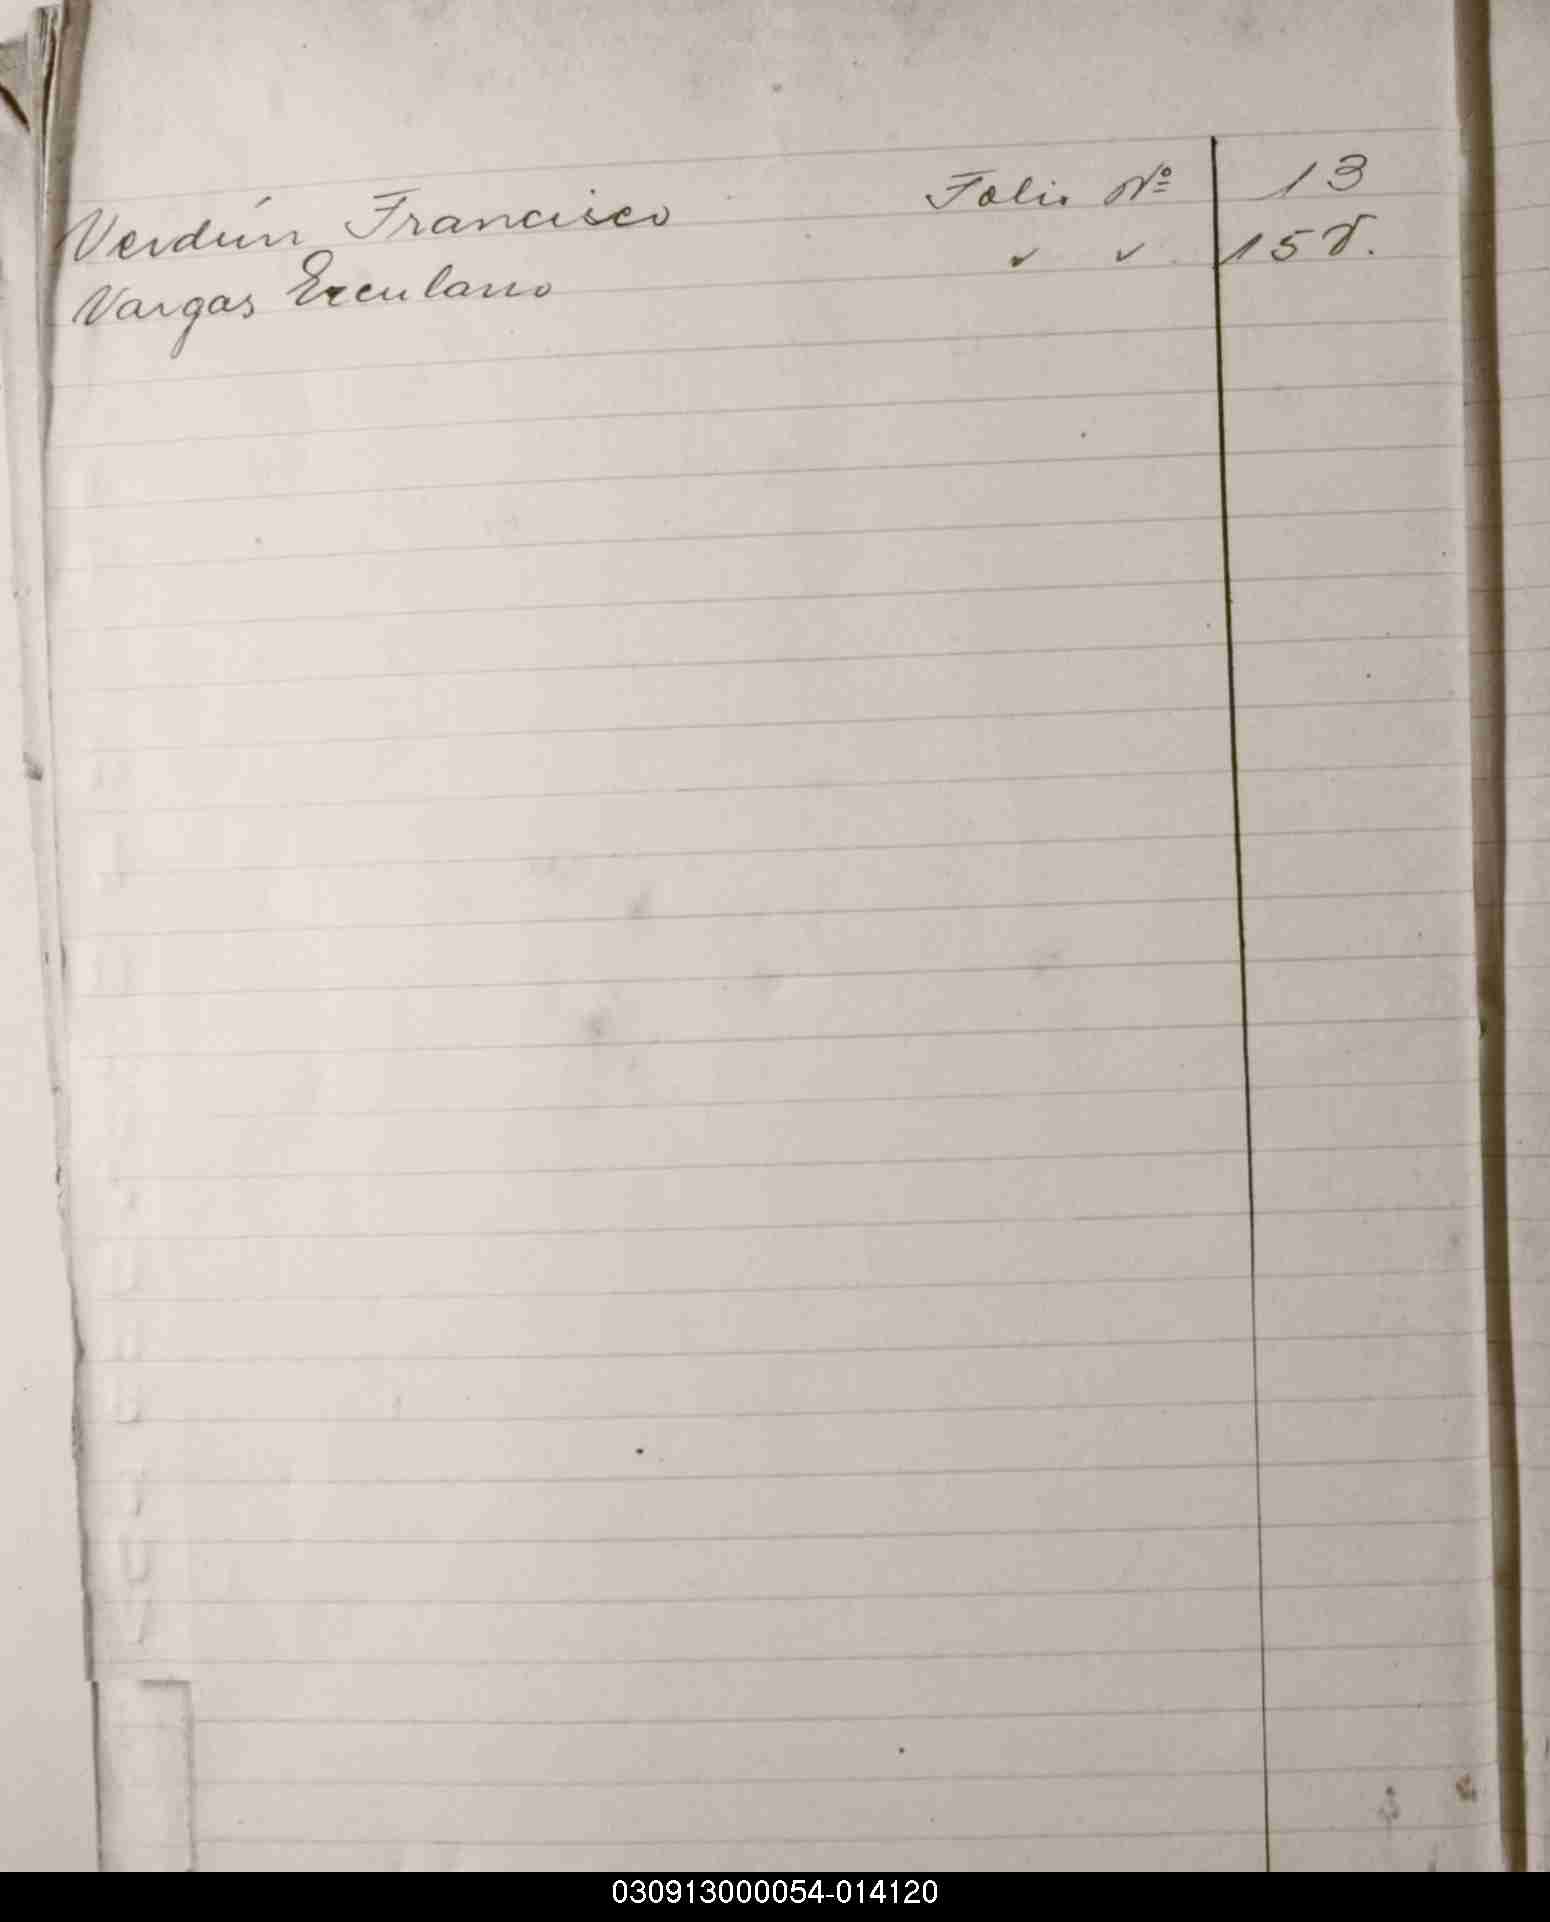 Verdún Francisco Folio Nº 13
Vargas Erculano ✓ ✓ 15 v.
030913000054-014120